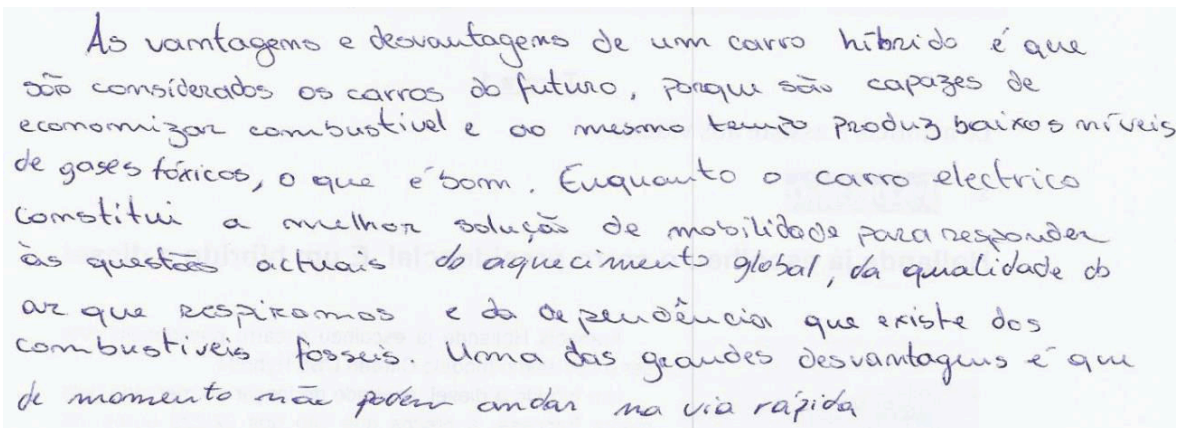 As vamtagens e desvantagens de um carro híbrido é que
são considerados os carros do futuro, porque são capazes de
economizar combustível e ao mesmo tempo produz baixos níveis
de gases tóxicos, o que é bom. Enquanto o carro electrico
constitui a melhor solução de mobilidade para responder
às questões actuais do aquecimento global, da qualidade do
ar que respiramos e da dependência que existe dos
combustiveis fosseis. Uma das grandes desvantagens é que
de momento não podem andar na via rápida